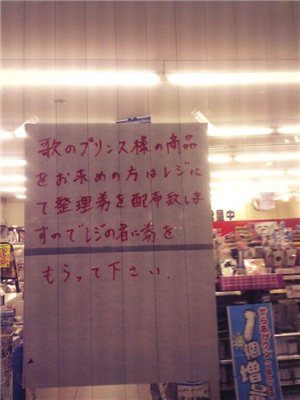 歌のプリンス様の商品
をお求めの方はレジに
て整理券を配布致しま
すのでレジの者に券を
もらって下さい.
1個増量